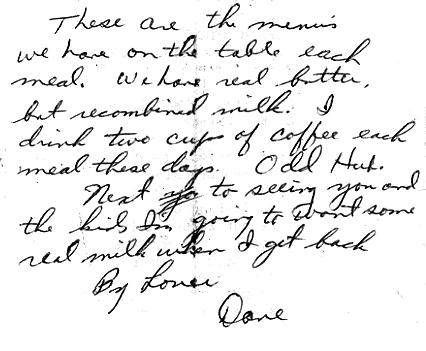 These are the menus
we have on the table each
meal. We have real butter,
but recombined milk. I
drink two cups of coffee each
meal these days. Odd Huh.
Next to seeing you and
the kids I'm going to want some
real milk when I get back
By
Dave